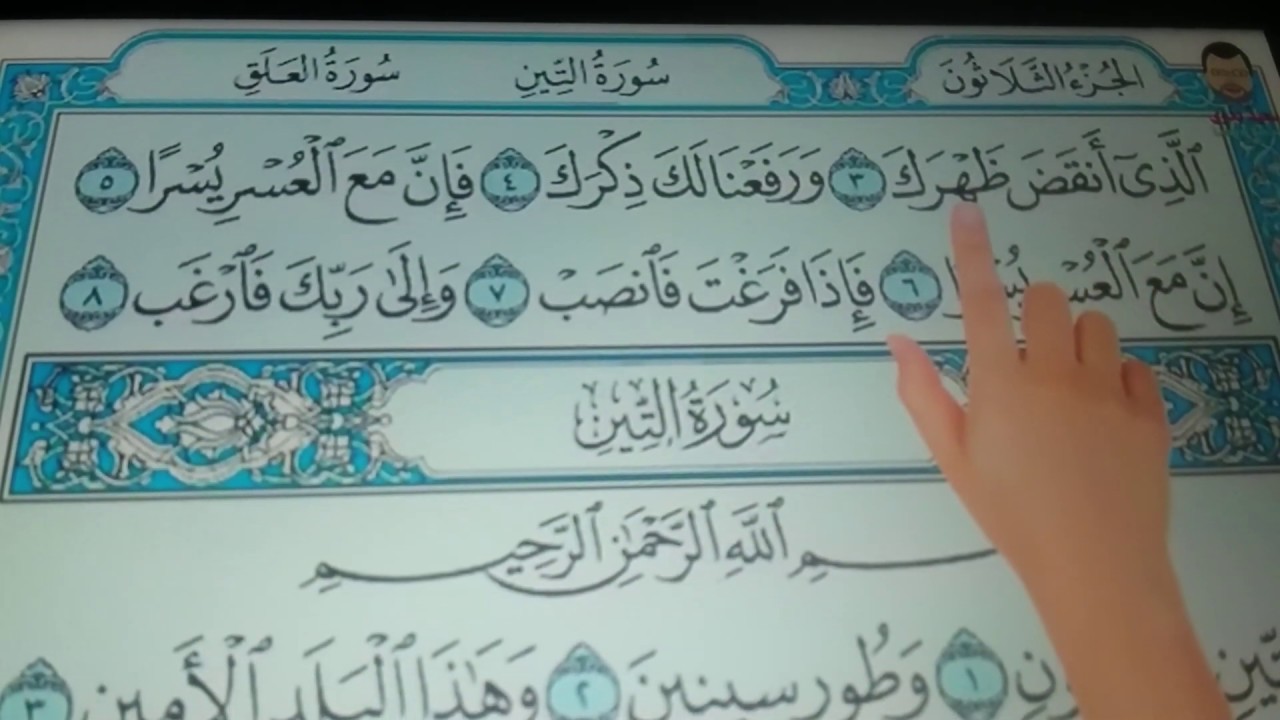 الجُزْءُ الثَّلَاثُونَ سُورَةُ التِّينِ سُورَةُ العَلَقِ
ٱلَّذِىٓ أَنقَضَ ظَهْرَكَ ٣ وَرَفَعْنَا لَكَ ذِكْرَكَ ٤ فَإِنَّ مَعَ ٱلْعُسْرِ يُسْرًا ٥
إِنَّ مَعَ ٱلْعُسْرِ يُسْرًا ٦ فَإِذَا فَرَغْتَ فَٱنصَبْ ٧ وَإِلَىٰ رَبِّكَ فَٱرْغَب ٨
سُورَةُ التِّينِ
ٱللَّهِ ٱلرَّحْمَٰنِ ٱلرَّحِيمِ
١ وَطُورِ سِينِينَ ٢ وَهَٰذَا ٱلْبَلَدِ ٱلْأَمِينِ ٣